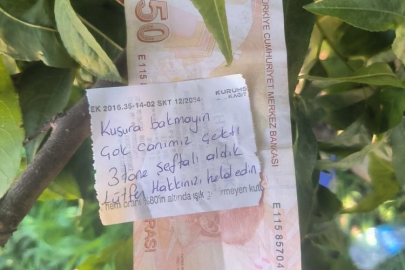 50
TÜRKİYE CUMHURİYET MERKEZ BANKASI
EK 2016.35-14-02 SKT
KURUMS
KAĞIT
Kusura bakmayın
Çok canımız çekti
3 tane şeftali aldık
Lütfen Hakkınızı helal edin
nem oranı %80'in altında ışık rmeyen kut
E115 8570
RASI